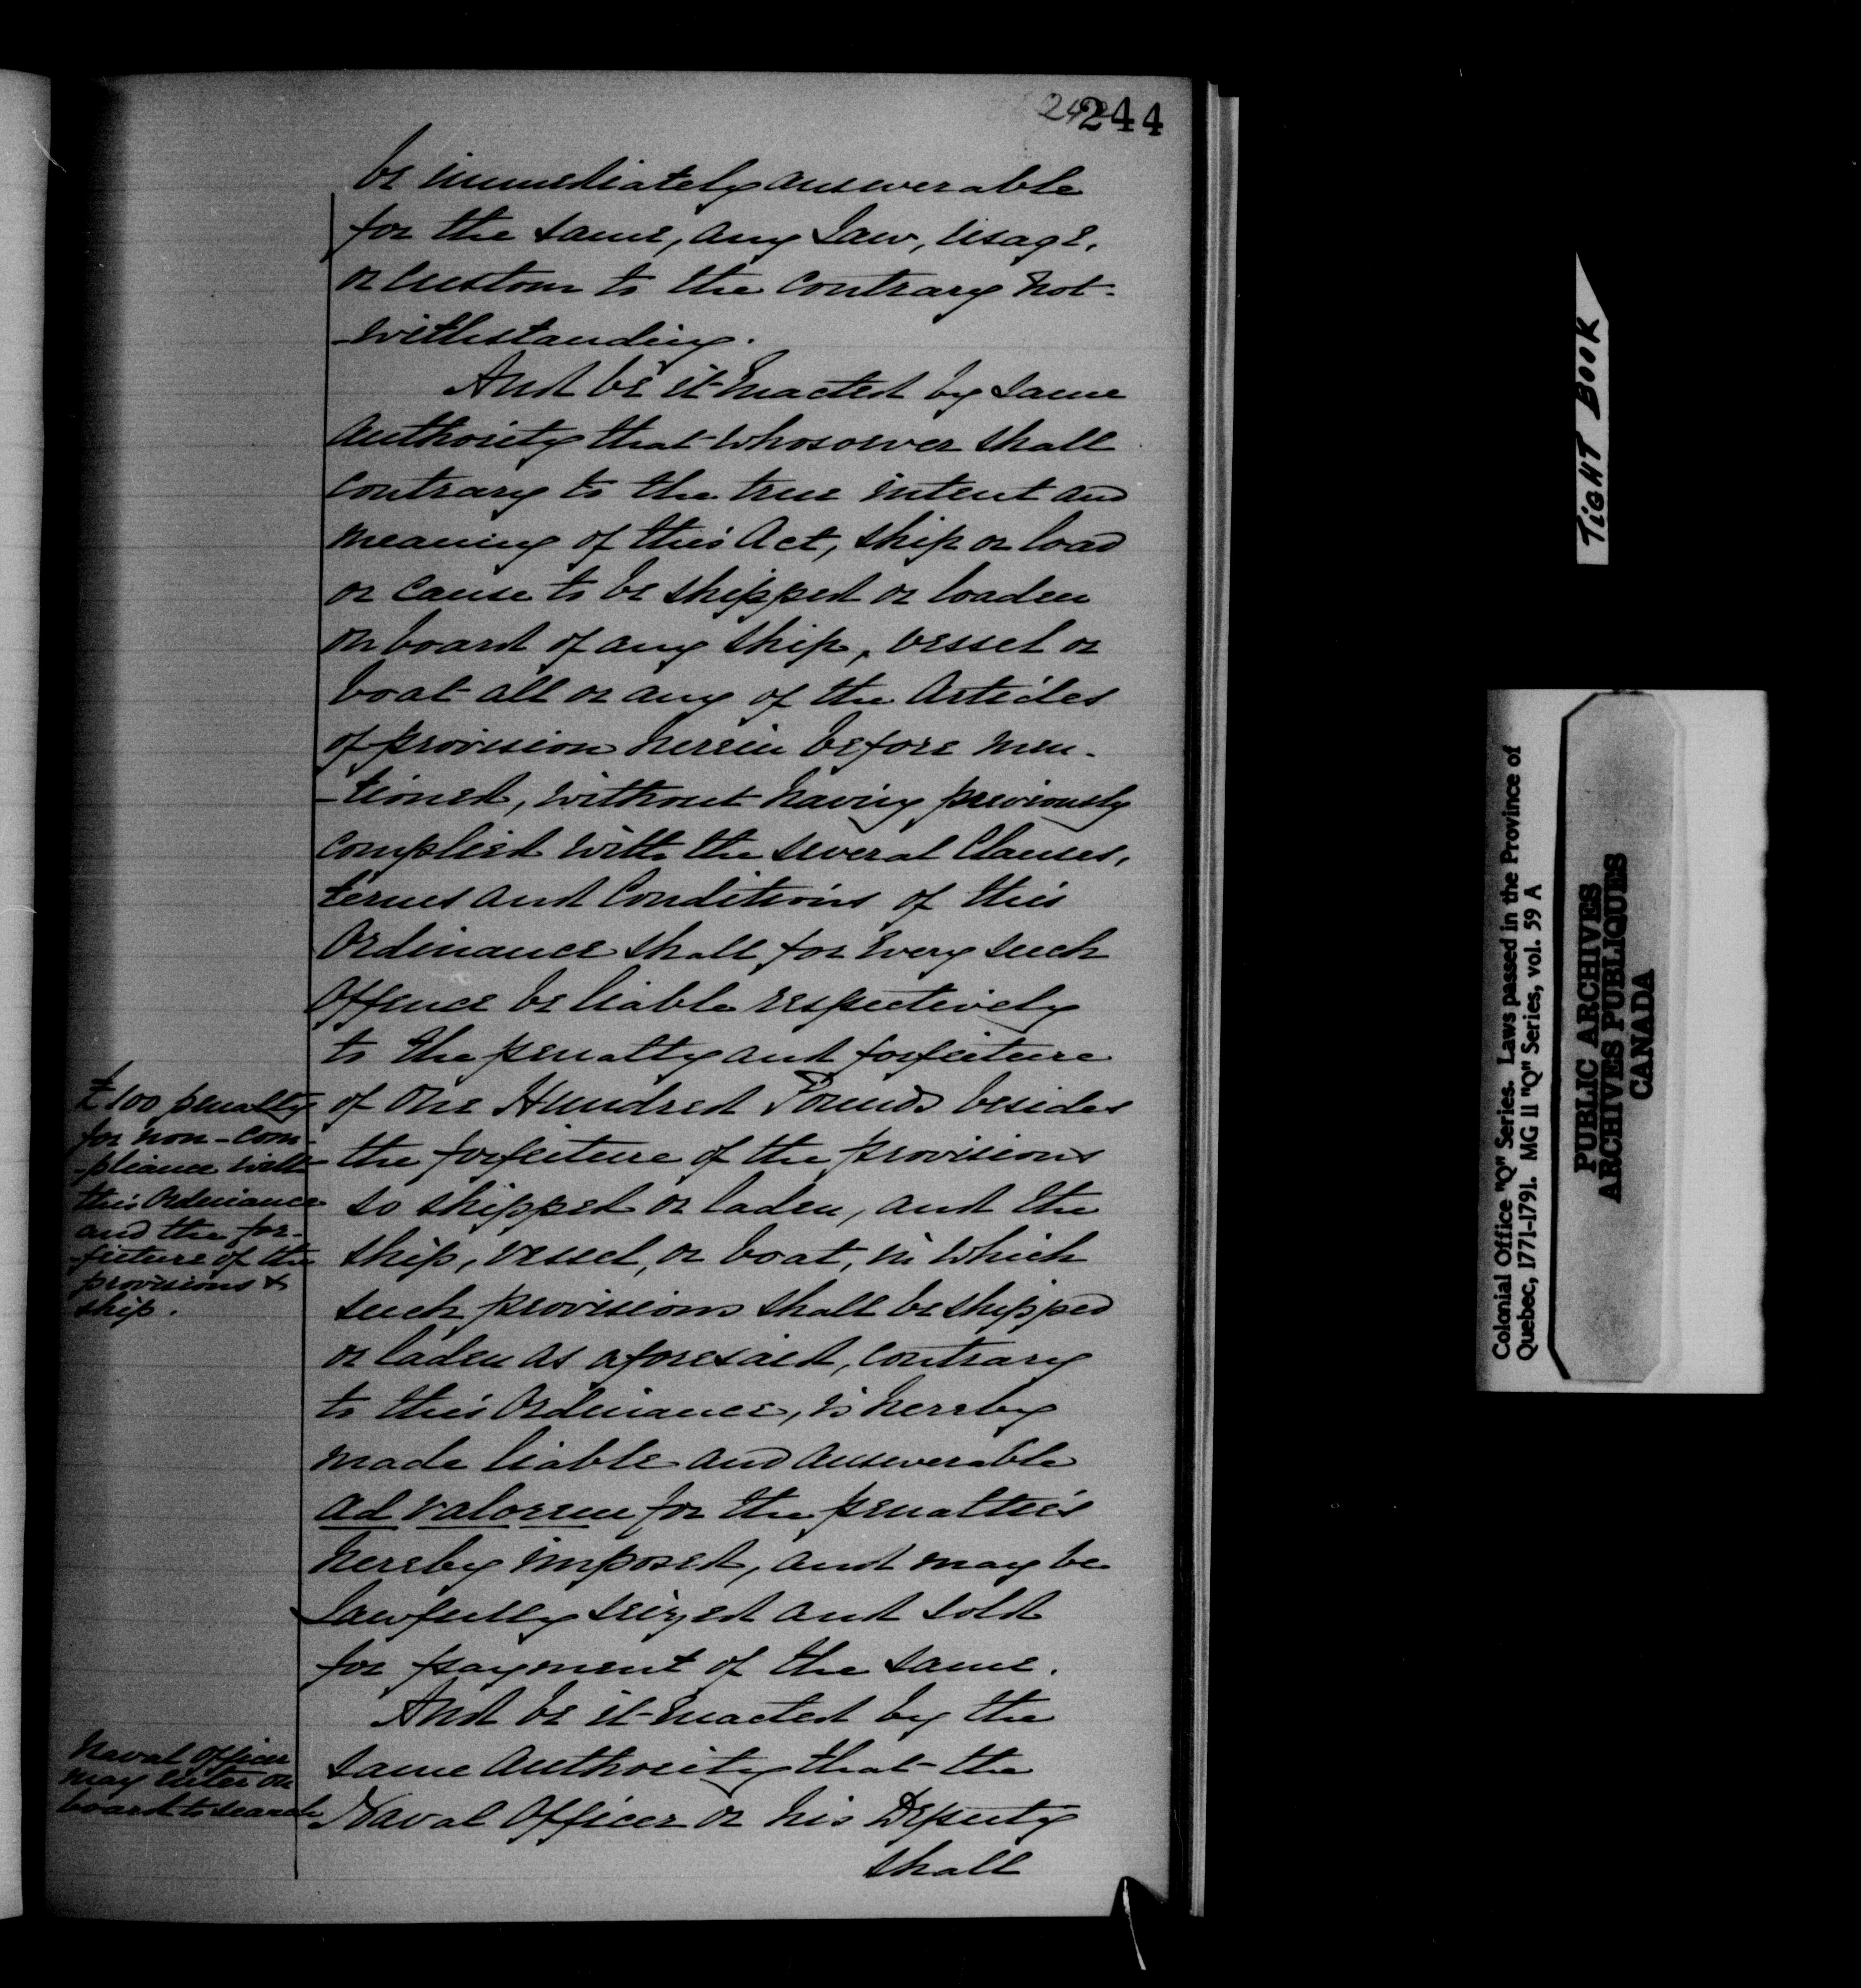 244
be immediately answerable
for the same, any Law, usage,
or Custom to the Contrary not-
-withstanding.
And be it Enacted by same
Authority that whosoever shall
contrary to the true intent and
meaning of this Act, ship or load
or cause to be shipped or loaden
on board of any ship, vessel or
boat all or any of the Articles
of provision herein before men-
-tioned, without having previously
complied with the several Clauses,
terms and Conditions of this
Ordinance shall for every such
Offence be liable respectively
to the penalty and forfeiture
of One Hundred Pounds besides
the forfeiture of the provisions
so shipped or laden, and the
ship, vessel, or boat, in which
such provisions shall be shipped
or laden as aforesaid, contrary
to this Ordinance, is hereby
made liable and answerable
ad valorem for the penalties
hereby imposed, and may be
Lawfully seized and sold
for payment of the same.
And be it Enacted by the
same Authority that the
Naval Officer or his Deputy
shall
£100 penalty
for non-com-
-pliance with
this Ordinance
and the for-
-feiture of the
provisions &
ship.
Naval Officer
may enter on
board to search
TIGHT BOOK
Colonial Office "Q" Series. Laws passed in the Province of
Quebec, 1771-1791. MG 11 "Q" Series, vol. 59 A
PUBLIC ARCHIVES
ARCHIVES PUBLIQUES
CANADA